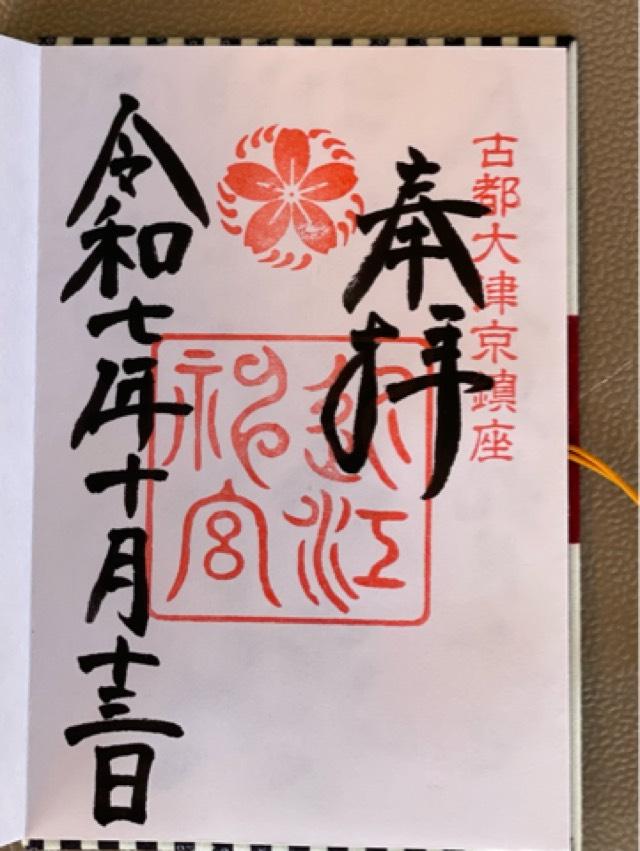 古都大津京鎮座
奉拝
近江
神宮
令和七年十月十三日